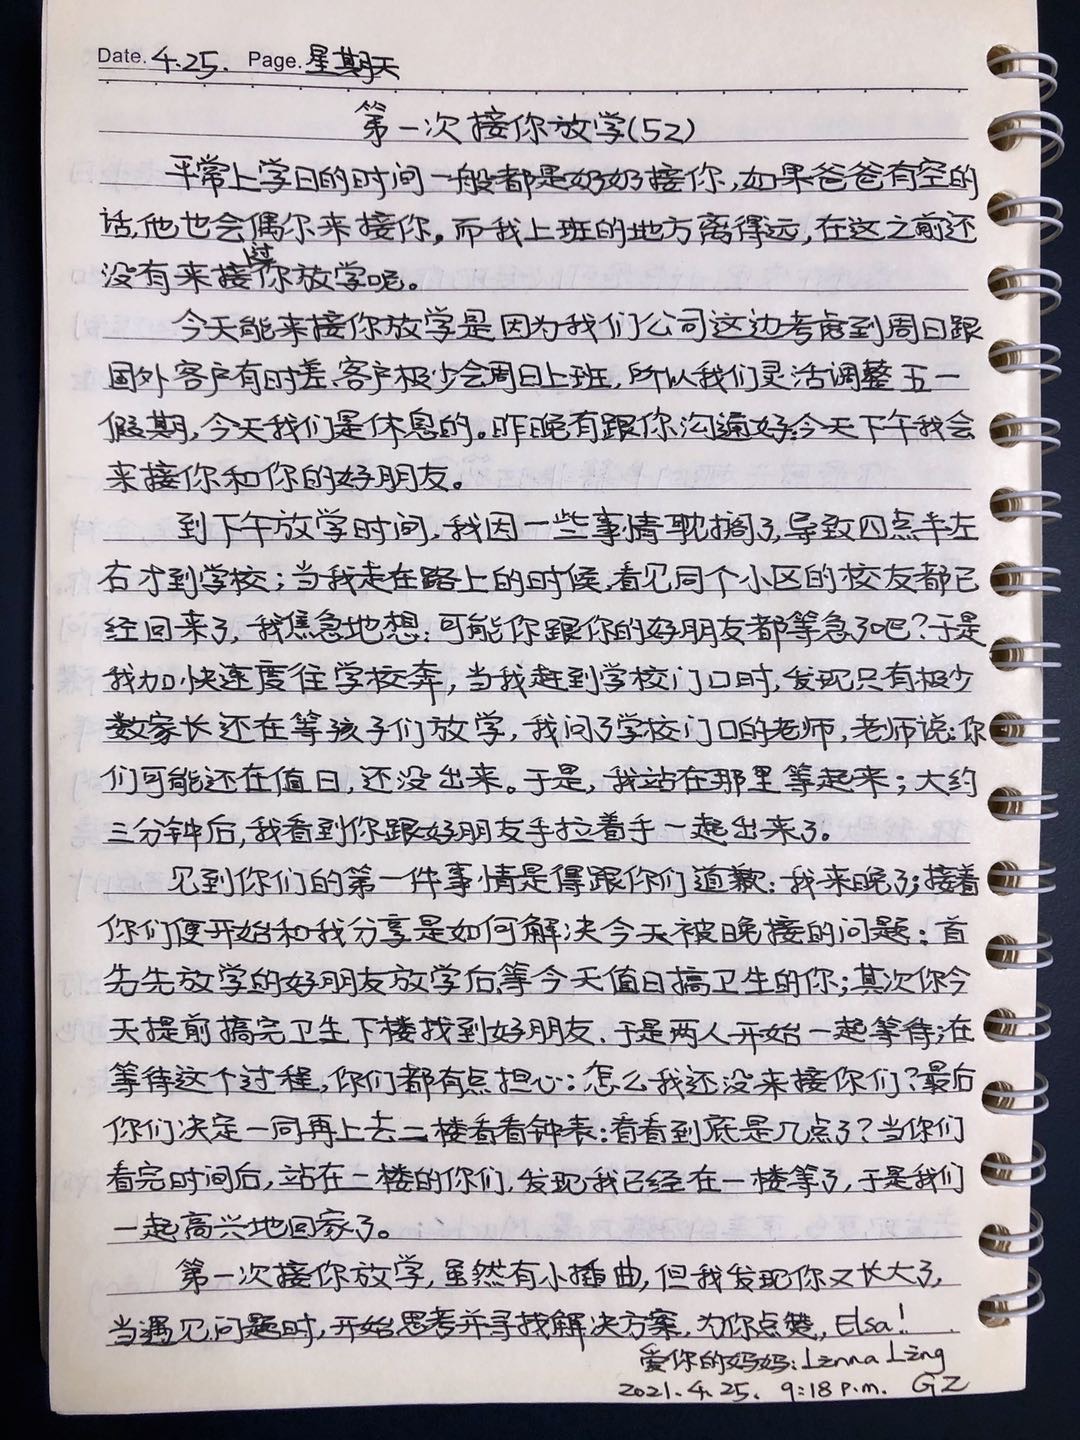 Date. 4.25. Page. 星期天
第一次接你放学(52)
平常上学日的时间一般都是奶奶接你,如果爸爸有空的
话,他也会偶尔来接你。而我上班的地方离得远,在这之前还
没有来接过你放学呢。
今天能来接你放学是因为我们公司这边考虑到周日跟
国外客户有时差、客户极少会周日上班,所以我们灵活调整五一
假期,今天我们是休息的。昨晚有跟你沟通好:今天下午我会
来接你和你的好朋友。
到下午放学时间,我因一些事情耽搁了,导致四点半左
右才到学校;当我走在路上的时候,看见同个小区的校友都已
经回来了,我焦急地想:可能你跟你的好朋友都等急了吧?于是
我加快速度往学校奔,当我赶到学校门口时,发现只有极少
数家长还在等孩子们放学,我问了学校门口的老师,老师说:你
们可能还在值日,还没出来。于是,我站在那里等起来;大约
三分钟后,我看到你跟好朋友手拉着手一起出来了。
见到你们的第一件事情是得跟你们道歉:我来晚了;接着
你们便开始和我分享是如何解决今天被晚接的问题:首
先先放学的好朋友放学后等今天值日搞卫生的你;其次你今
天提前搞完卫生下楼找到好朋友、于是两人开始一起等待;在
等待这个过程,你们都有点担心:怎么我还没来接你们?最后
你们决定一同再上去二楼看看钟表:看看到底是几点了?当你们
看完时间后,站在二楼的你们,发现我已经在一楼等了,于是我们
一起高兴地回家了。
第一次接你放学,虽然有小插曲,但我发现你又长大了,
当遇见问题时,开始思考并寻找解决方案,为你点赞,Elsa!
爱你的妈妈:Lenna Ling
2021.4.25. 9:18 p.m. GZ